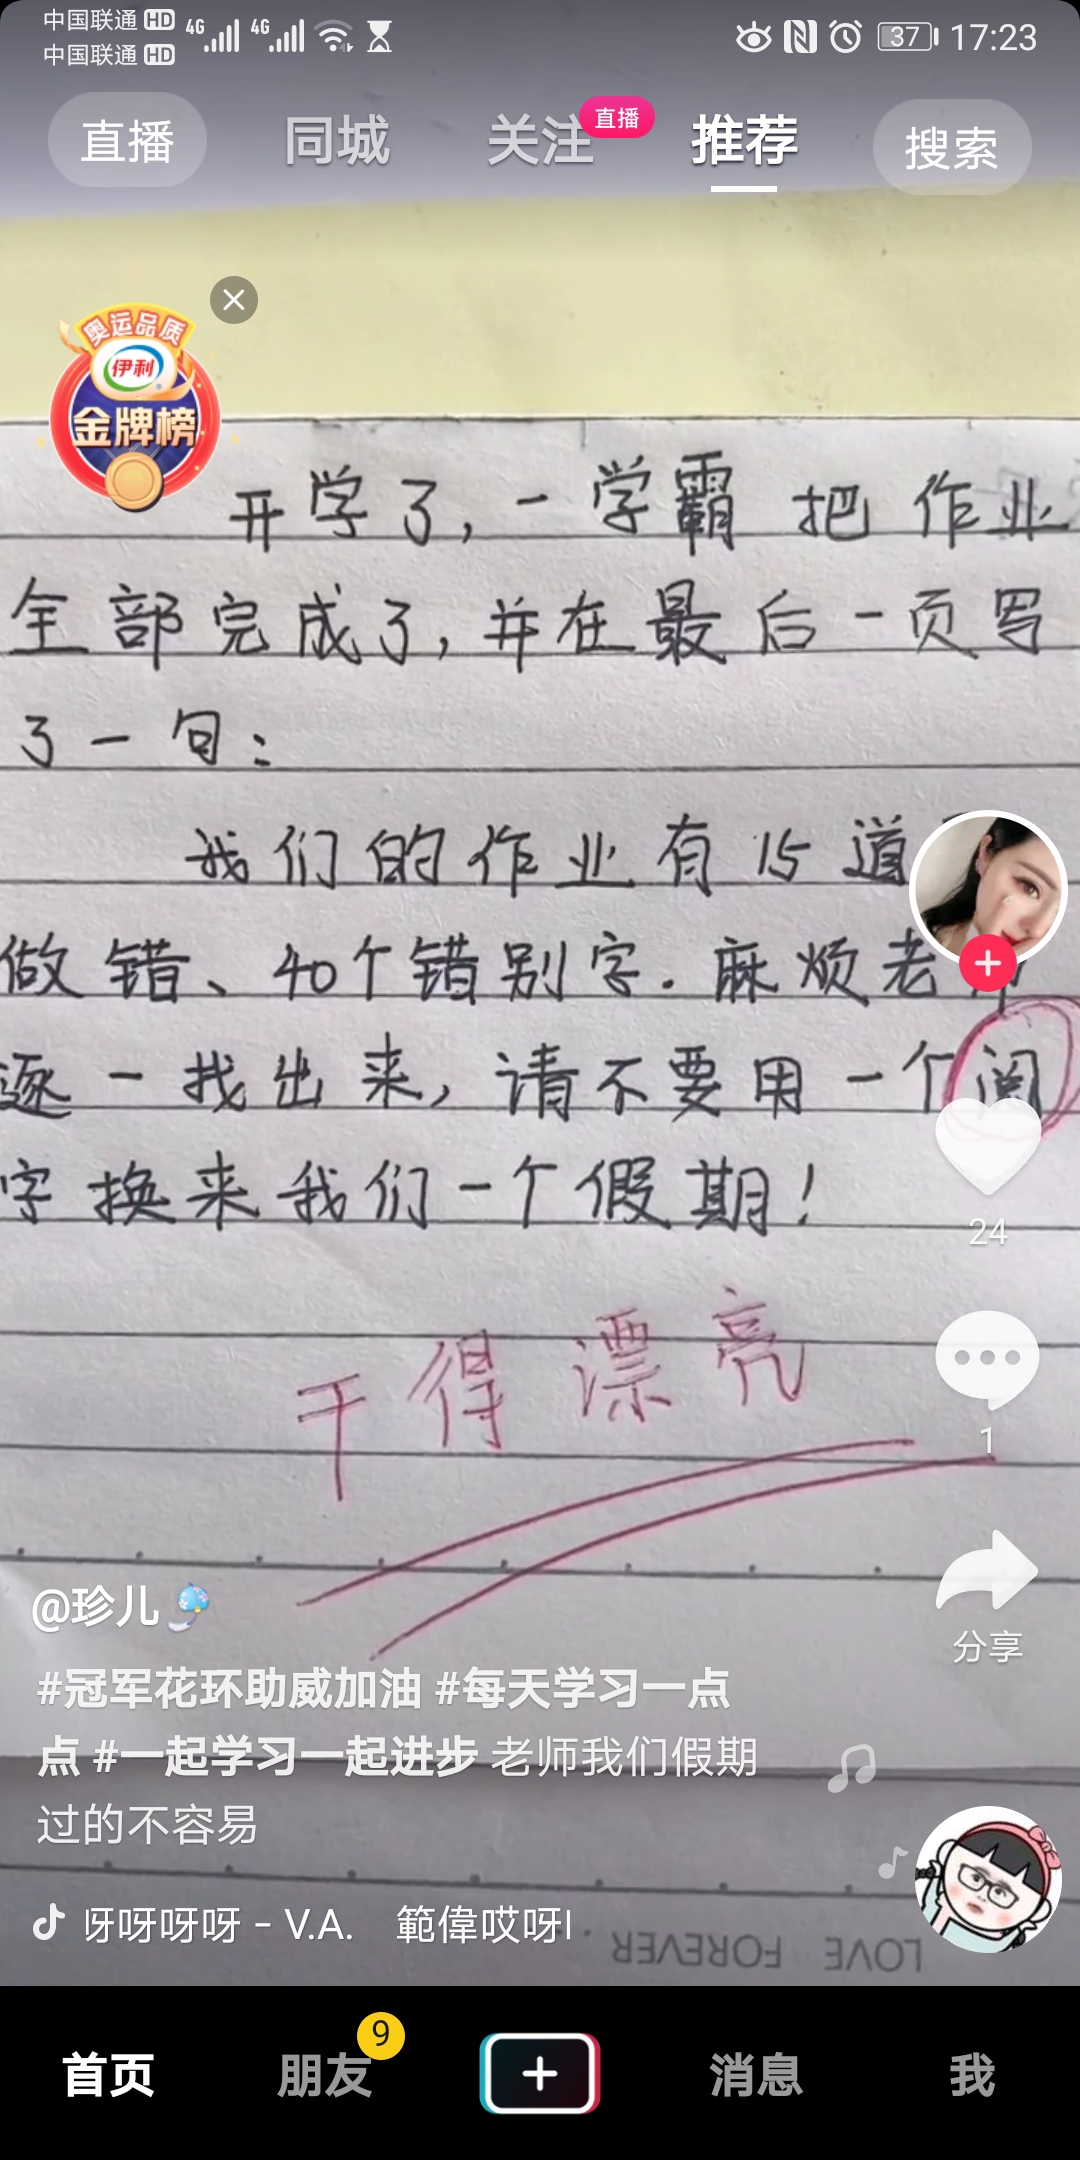 中国联通 HD 4G 4G 37 17:23
中国联通 HD
直播 同城 关注 直播 推荐 搜索
奥运品质
伊利
金牌榜
开学了,一学霸把作业
全部完成了,并在最后一页写
了一句:
我们的作业有15道
做错、40个错别字.麻烦老
逐一找出来,请不要用一个阅
字换来我们一个假期!
24
干得漂亮
1
@珍儿
分享
#冠军花环助威加油 #每天学习一点
点 #一起学习一起进步 老师我们假期
过的不容易
呀呀呀呀 - V.A. 範偉哎呀
LOVE FOREVER
首页 朋友 9 消息 我